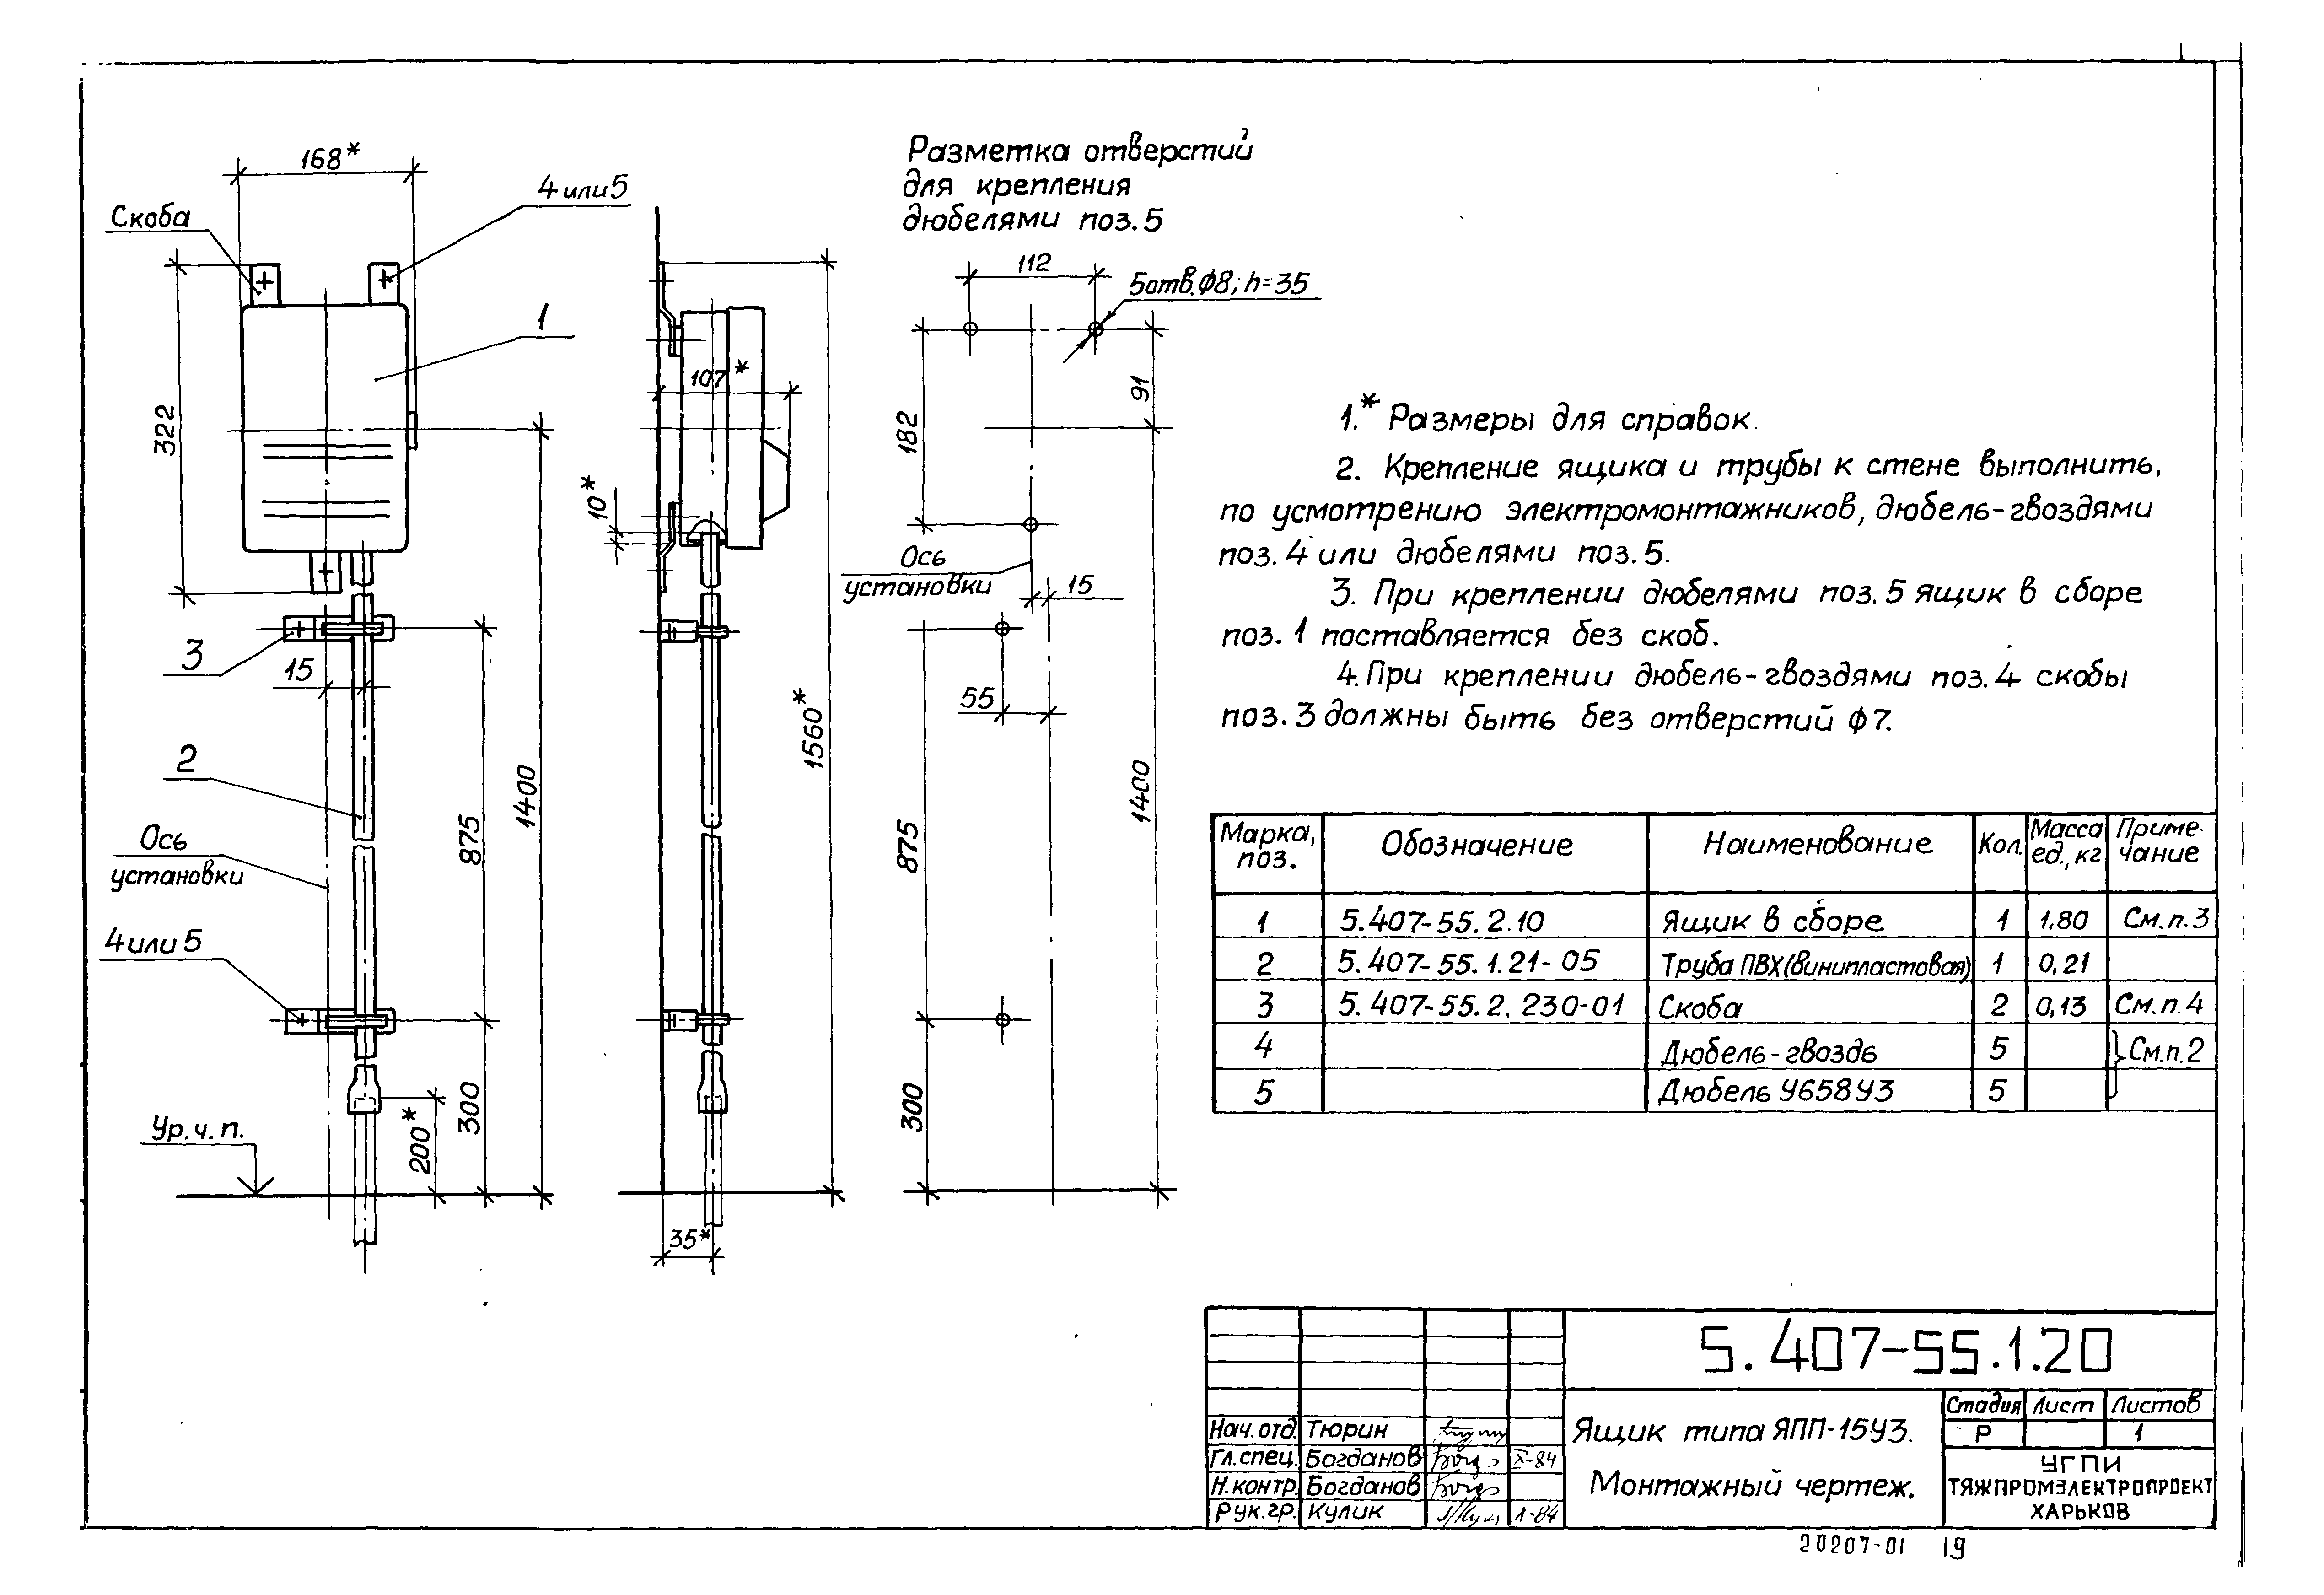 168*
Скоба
4 или 5
1
322
3
15
2
Ось
установки
4 или 5
875
1400
300
200*
Ур. ч. п.
107*
10*
1560*
35*
Разметка отверстий
для крепления
дюбелями поз. 5
112
5 отв. ф8; h=35
91
182
Ось
установки
15
55
875
1400
300
1.* Размеры для справок.
2. Крепление ящика и трубы к стене выполнить,
по усмотрению электромонтажников, дюбель-гвоздями
поз. 4 или дюбелями поз. 5.
3. При креплении дюбелями поз. 5 ящик в сборе
поз. 1 поставляется без скоб.
4. При креплении дюбель-гвоздями поз. 4 скобы
поз. 3 должны быть без отверстий ф7.
Марка, поз. Обозначение Наименование Кол. Масса ед., кг Приме-чание
1 5.407-55.2.10 Ящик в сборе 1 1,80 См. п. 3
2 5.407-55.1.21-05 Труба ПВХ (винипластовая) 1 0,21
3 5.407-55.2.230-01 Скоба 2 0,13 См. п. 4
4 Дюбель-гвоздь 5 См. п. 2
5 Дюбель У658У3 5
5.407-55.1.20
Нач. отд. Тюрин
Гл. спец. Богданов X-84
Н. контр. Богданов
Рук. гр. Кулик X-84
Ящик типа ЯПП-15У3.
Монтажный чертеж.
Стадия Лист Листов
Р 1
УГПИ
ТЯЖПРОМЭЛЕКТРОПРОЕКТ
ХАРЬКОВ
20207-01 19